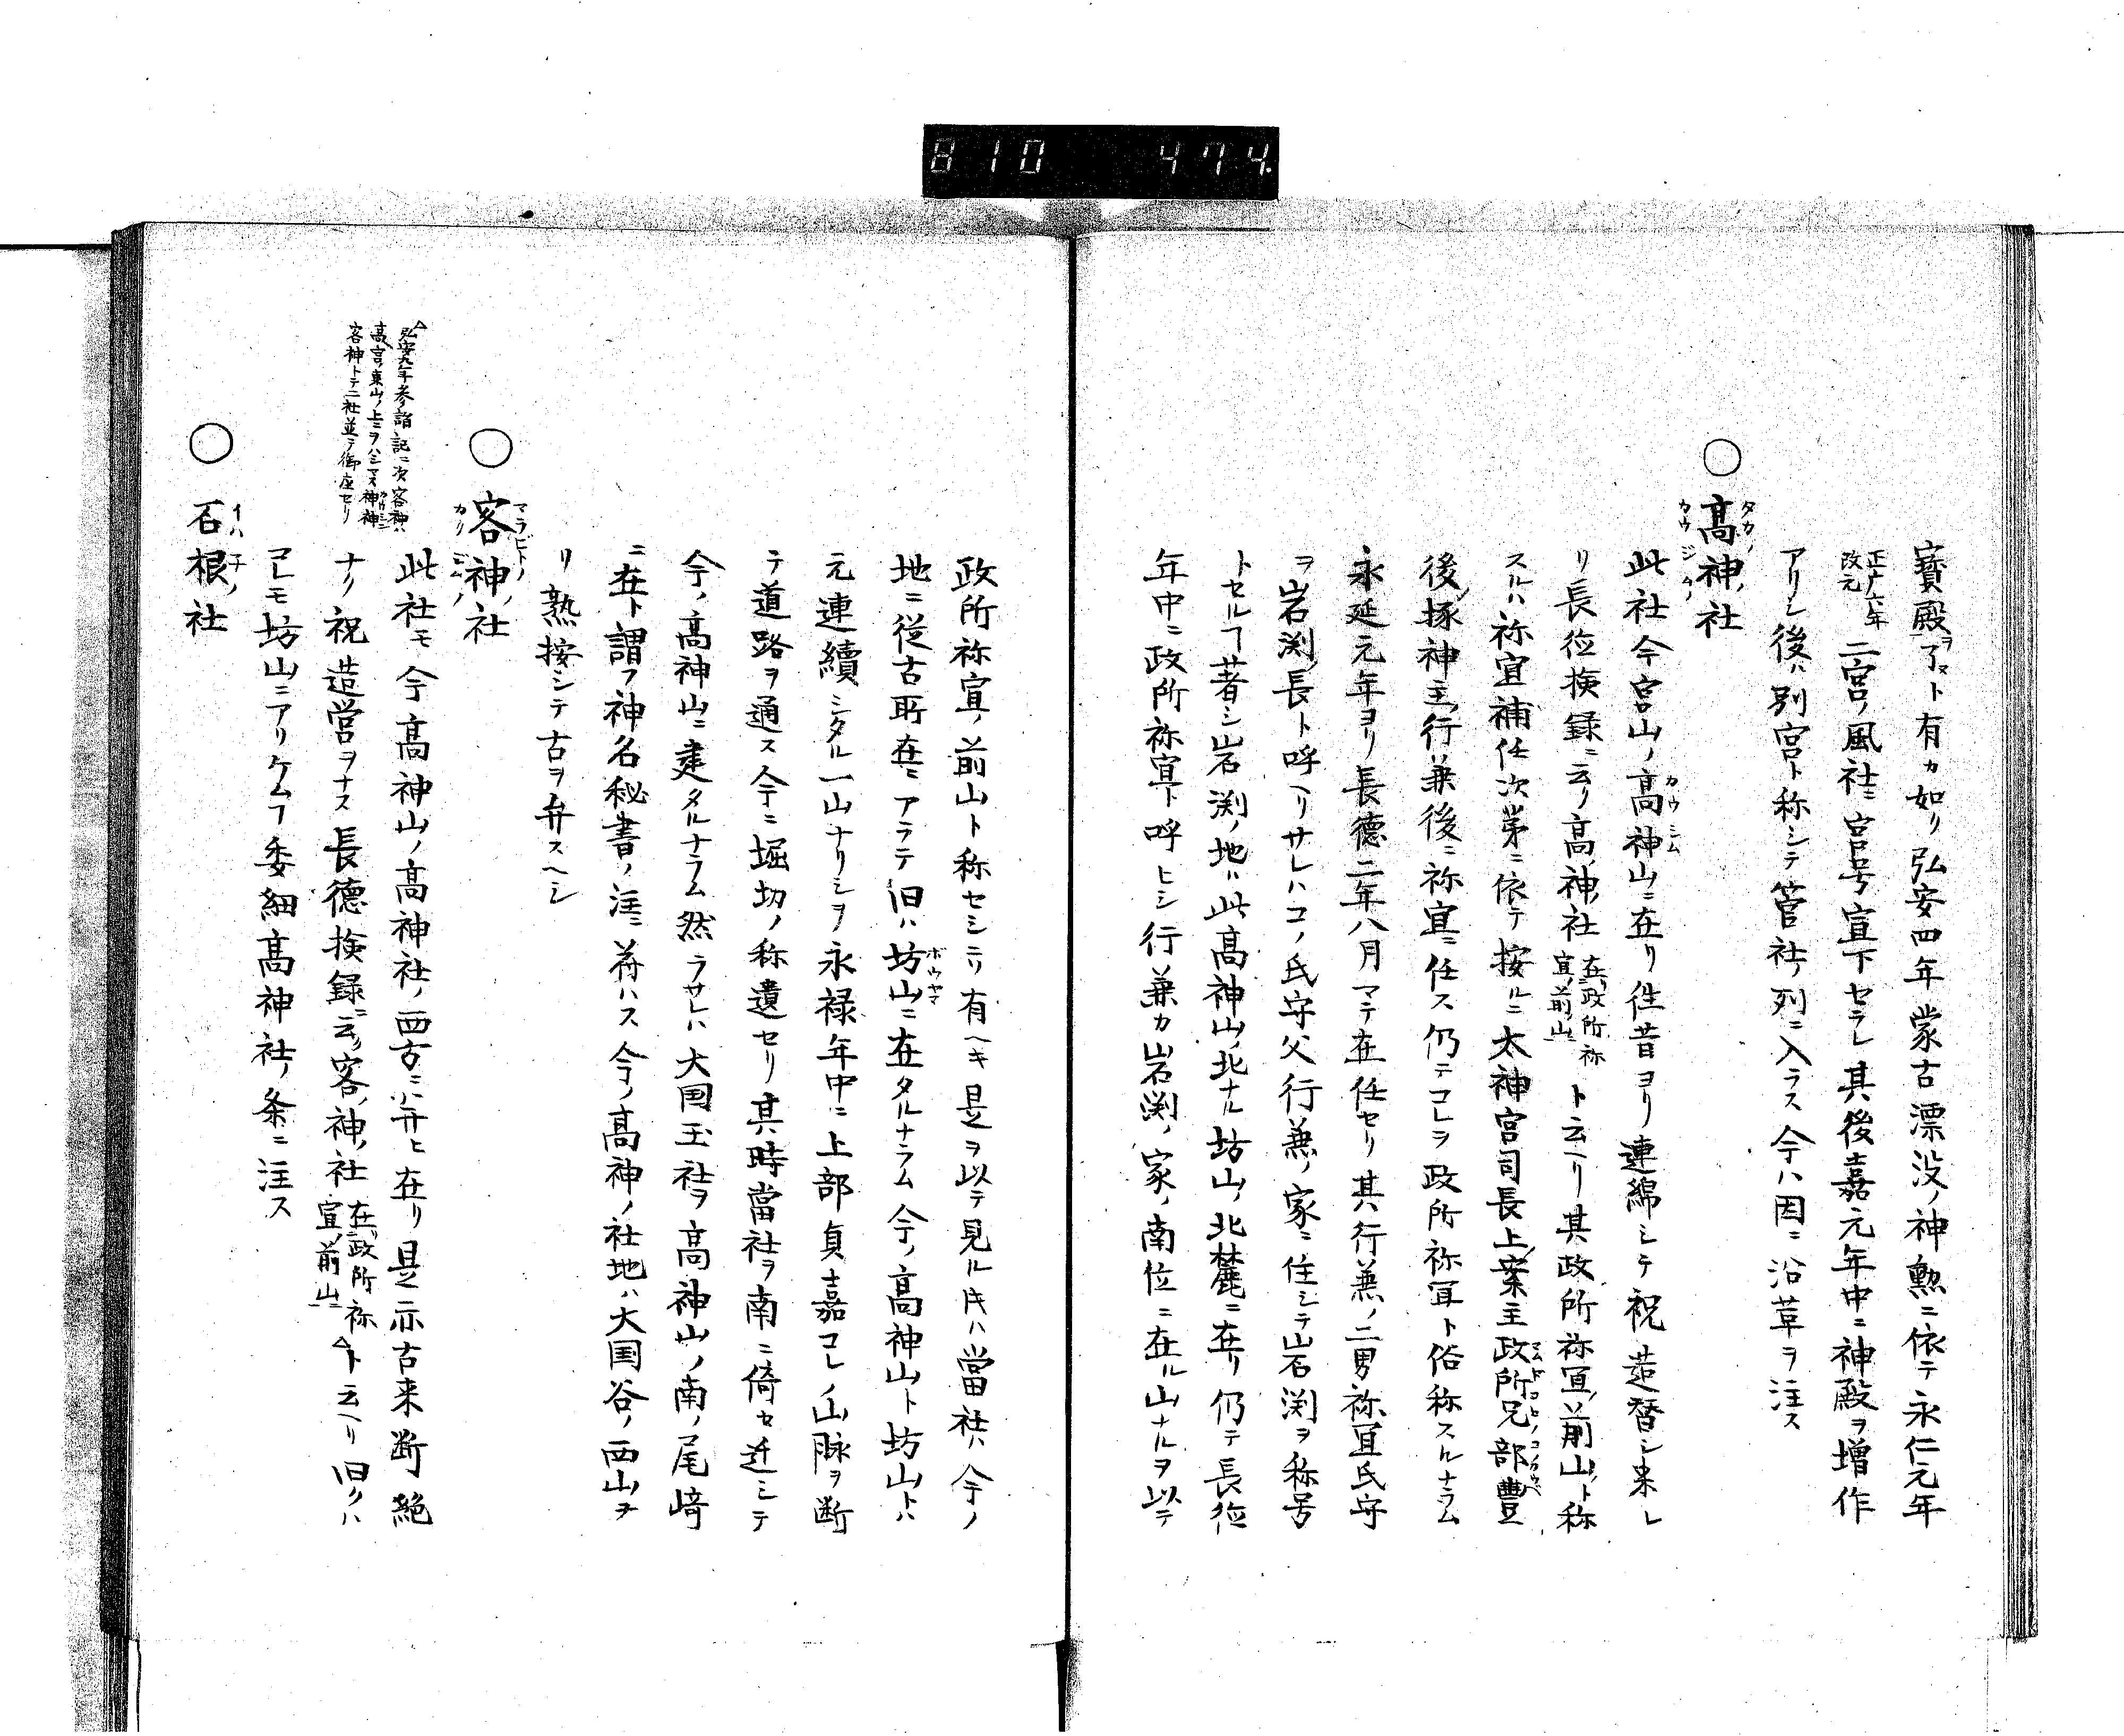 810 474.
寶殿ヲ了ヌト有カ如リ弘安四年蒙古漂没ノ神勲ニ依テ永仁元年
正應六年改元 二宮ノ風社ニ宮号宣下セラレ其後嘉元年中ニ神殿ヲ増作
アリシ後ハ別宮ト称シテ管社ノ列ニ入ラス今ハ因ニ沿革ヲ注ス
○高神ノ社
タカノ
カウジンノ
此社今宮山ノ高神山ニ在リ徃昔ヨリ連綿シテ祝造替シ来レ
カウシム
リ長徳検録ニ云リ高ノ神ノ社 在政所祢宜ノ前山ニ ト云ヘリ其政所祢宜ノ前山ト称
スルハ祢宜補任次第ニ依テ按ルニ太神宮司長上案主政所兄部豊
マムドコロノコノカウベ
後ノ掾神主行兼後ニ祢宜ニ任ス仍テコレヲ政所祢宜ト俗称スルナラム
永延元年ヨリ長徳二年八月マテ在任セリ其行兼ノ二男祢宜氏守
ヲ岩渕ノ長ト呼ヘリサレハコノ氏守父行兼ノ家ニ住シテ岩渕ヲ称号
トセルヿ昔者シ岩渕ノ地ハ此高神山ノ北ナル坊山ノ北麓ニ在リ仍テ長徳
年中ニ政所祢宜ト呼ヒシ行兼カ岩渕ノ家ノ南位ニ在ル山ナルヲ以テ
政所祢宜ノ前山ト称セシニリ有ヘキ是ヲ以テ見ル氏ハ當社ハ今ノ
地ニ従古所在ニアラテ旧ハ坊山ニ在タルナラム今ノ高神山ト坊山トハ
ボウヤマ
元連續シタル一山ナリシヲ永禄年中ニ上部貞嘉コレノ山脉ヲ断
テ道路ヲ通ス今ニ堀切ノ称遺セリ其時當社ヲ南ニ倚セ迁シテ
今ノ高神山ニ建タルナラム然ラサレハ大国玉社ヲ高神山ノ南ノ尾崎
ニ在ト謂フ神名秘書ノ注ニ苻ハス今ノ高神ノ社地ハ大国谷ノ西山ヲ
リ熟按シテ古ヲ弁スヘシ
○客神ノ社
マラビトノ
此社モ今高神山ノ高神社ノ西方ニ并ヒ在リ是亦古来断絶
△弘安九年参詣記ニ次客神ハ
高宮ノ東山ノ上ニヲハシマス神
客神トテ二社並テ御座セリ
ナク祝造営ヲナス長徳検録ニ云ク客ノ神ノ社 在政所祢宜ノ前山ニ △ト云ヘリ旧クハ
コレモ坊山ニアリケムヿ委細高神社ノ条ニ注ス
○石根ノ社
イハネノ